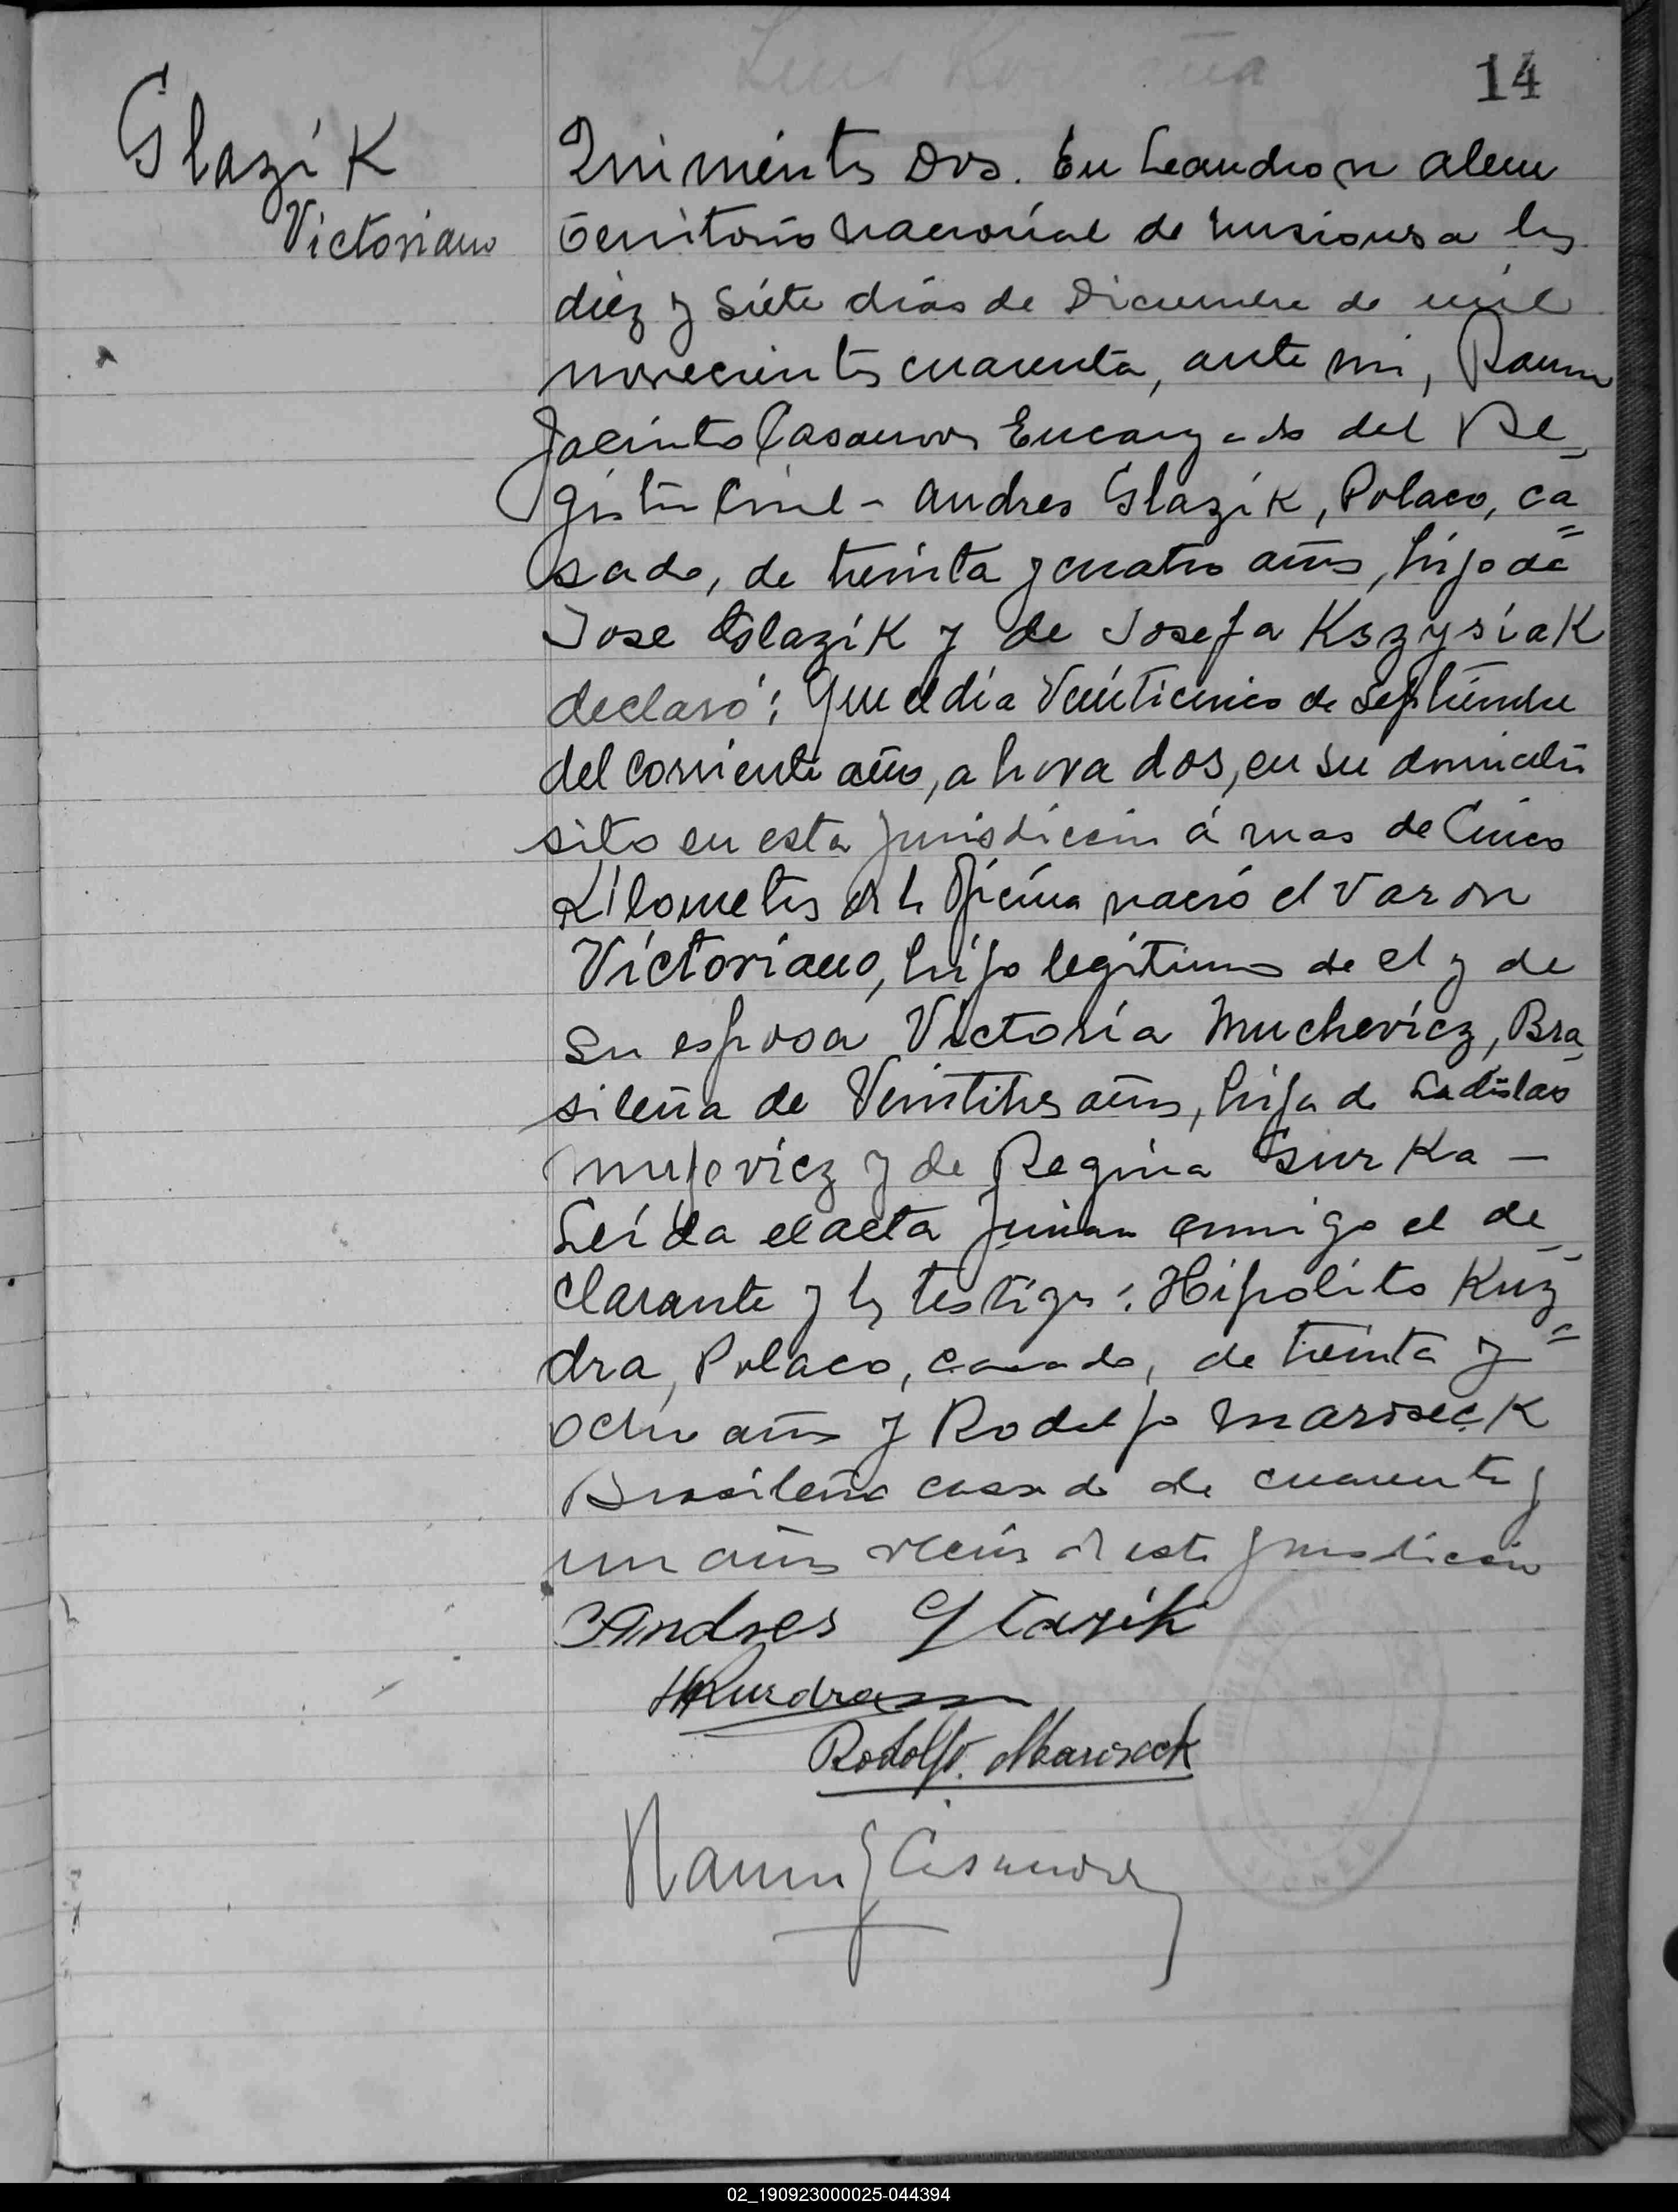 14
Glazik
Victoriano
Quinientos Dos. En Leandro N Alem
Territorio Nacional de Misiones a los
diez y siete dias de Diciembre de mil
novecientos cuarenta, ante mi, Ramon
Jacinto Casanova Encargado del Re=
gistro Civil - Andres Glazik, Polaco, ca=
sado, de treinta y cuatro años, hijo de
Jose Glazik y de Josefa Kszysiak
declaró: Que el dia Veinticinco de Septiembre
del corriente año, a hora dos, en su domicilio
sito en esta jurisdiccion á mas de Cinco
Kilometros de la Oficina nació el varon
Victoriano, hijo legitimo de el y de
su esposa Victoria Muchevicz, Bra=
sileña de Veintitres años, hija de Ladislao
Mujevicz y de Regina Gurka —
Leida el acta firman conmigo el de=
clarante y los testigos: Hipolito Kuz=
dra, Polaco, casado, de treinta y
ocho años y Rodolfo Mariseck
Brasileño casado de cuarenta y
un años vecinos de esta jurisdiccion
Andres Glazik
HKuzdra
Rodolfo. Mariseck
Ramon J Casanova
02_190923000025-044394